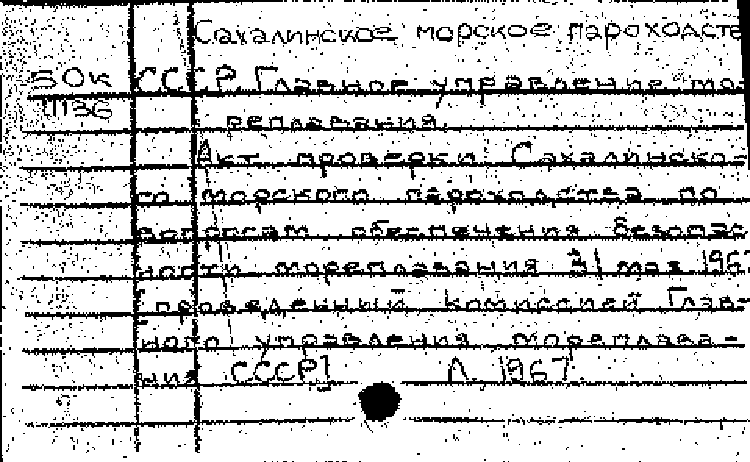 Сахалинское морское пароходств
50к СССР. Главное управление мо-
11136
реплавания.
Акт проверки Сахалинско-
го морского пароходства по
вопросам обеспечения безопас
ности мореплавания 31 мая 1967
[проведенный комиссией Глав-
ного управления мореплава-
ния СССР] Л. 1967